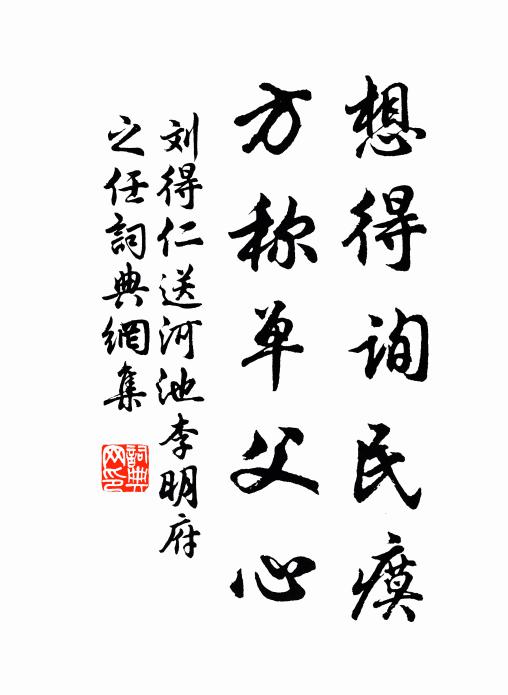 想得询民瘼
方称单父心
刘得仁送河池李明府
之任詞典網集
詞典
网印